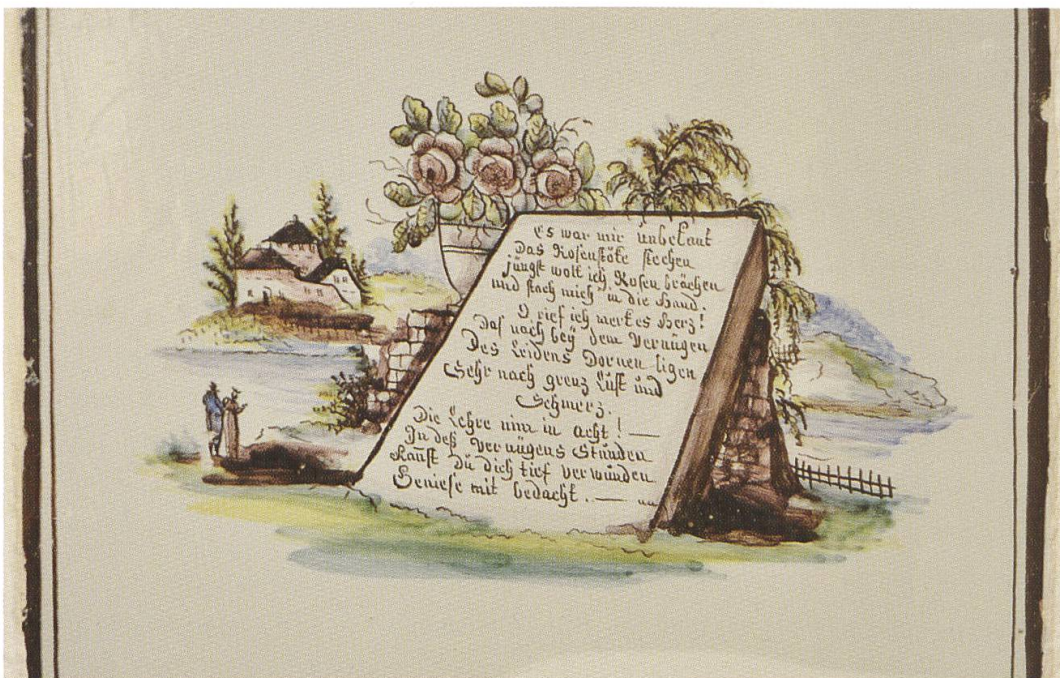 Es war mir unbekant
Das Rosenstöke stechen
jüngst wolt ich Rosen brächen
und stach mich in die Hand:
O rief ich merk es Herz!
Das nach bey dem Vernügen
Des Leidens Dornen ligen
Sehr nach grenz Lust und
Schmerz.
Die Lehre nim in acht! —
In deß Vernügens Stunden
Kanst Du dich tief verwunden
Geniese mit bedacht. —